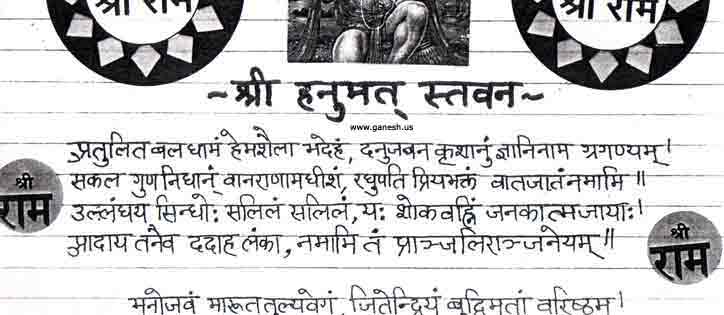 श्री राम
श्री राम
~श्री हनुमत् स्तवन~
www.ganesh.us
अतुलित बल धामं हेमशैला भदेहं, दनुजवन कृशानुं ज्ञानिनाम ग्रगण्यम्।
सकल गुणनिधानं वानराणामधीशं, रघुपति प्रियभक्तं वातजातंनमामि॥
उल्लंघय सिन्धोः सलिलं सलिलं, यः शोकवह्निं जनकात्मजायाः।
आदाय तनैव ददाह लंका, नमामि तं प्राञ्जलिराञ्जनेयम्॥
श्री राम
श्री राम
मनोजवं मारूततुल्यवेगं, जितेन्द्रियं बुद्धिमतां वरिष्ठम।